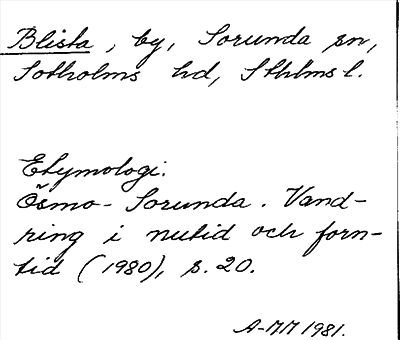 Blista, by, Sorunda sn,
Sotholms hd, Sthlms l.
Etymologi.
Ösmo - Sorunda. Vand-
ring i nutid och forn-
tid (1980), s. 20.
A-MM 1981.